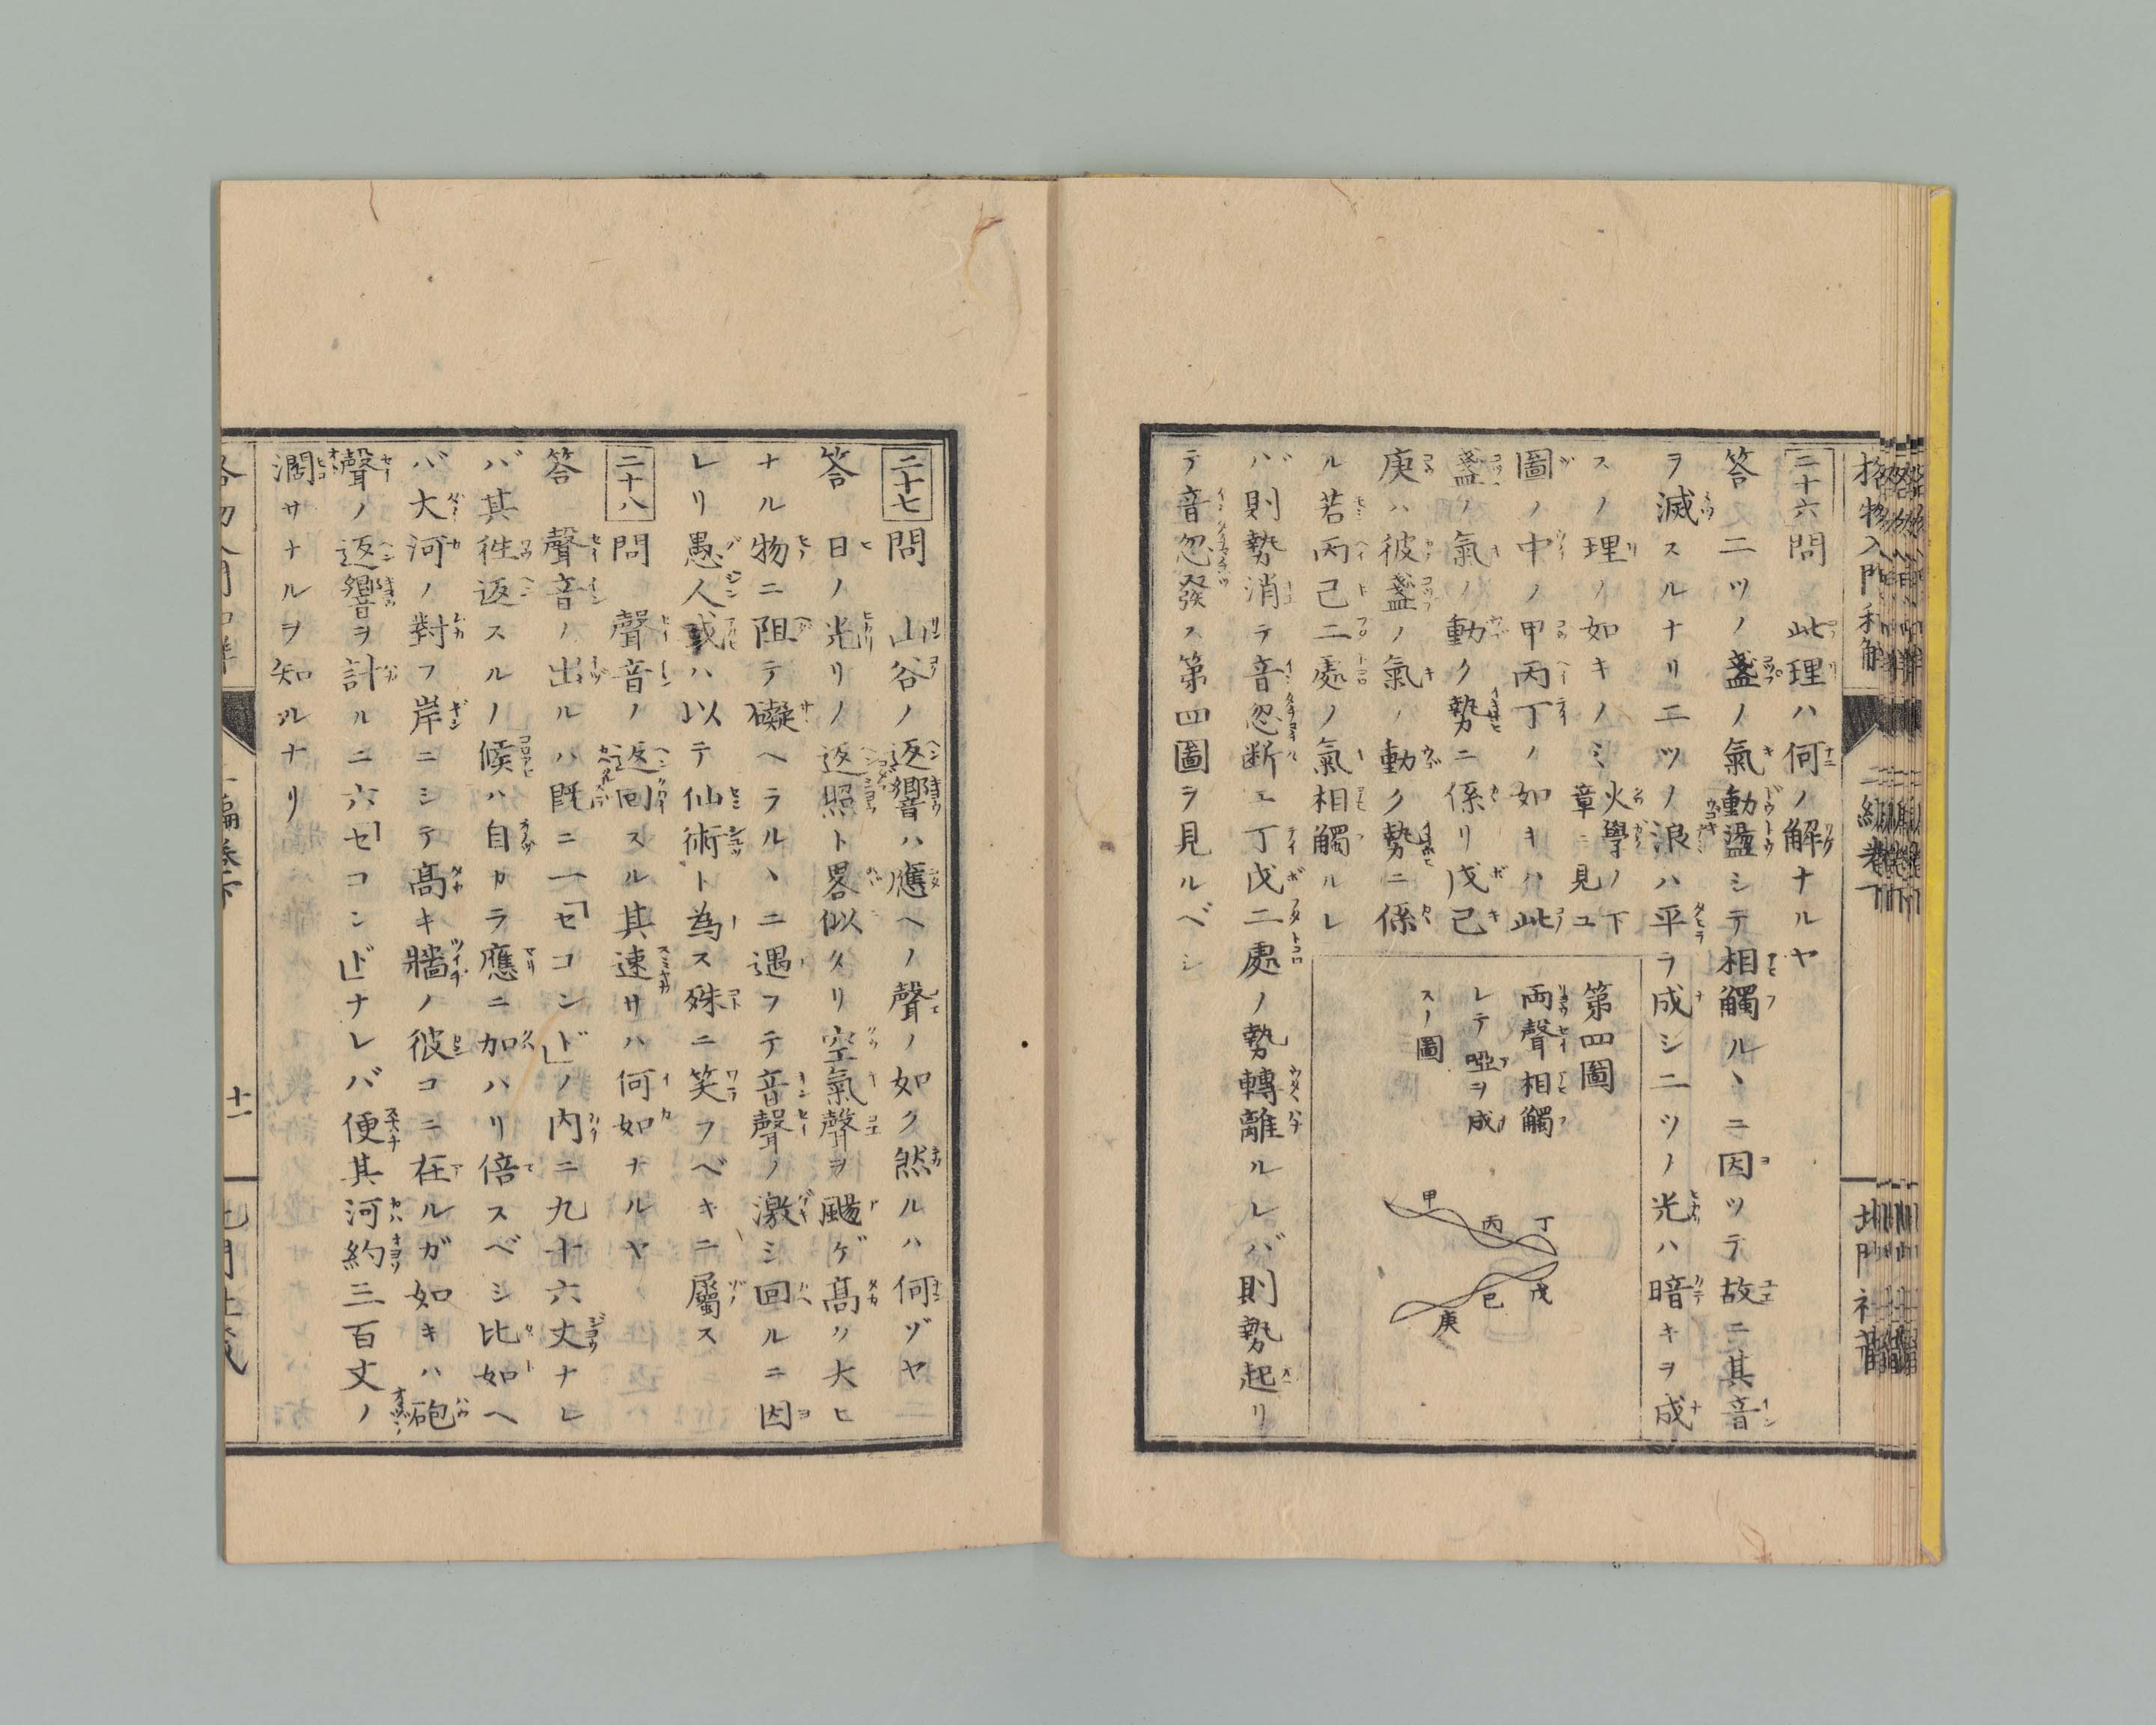 格物入門和解
二編巻下
北門社蔵
二十六 問 此理ハ何ノ解ナルヤ
答 二ツノ盞ノ氣動盪シテ相觸ルヽニ因ツテ故ニ其音
ヲ滅スルナリ二ツノ浪ハ平ラ成シ二ツノ光ハ暗キヲ成
スノ理ノ如キノミ火學ノ下章ニ見ユ
圖ノ中ノ甲丙丁ノ如キハ此
盞ノ氣ノ動ク勢ニ係リ戊己
庚ハ彼盞ノ氣ノ動ク勢ニ係
ル若丙己二處ノ氣相觸ルレ
バ則勢消テ音忽断エ丁戊二處ノ勢轉離ルレバ則勢起リ
テ音忽發ス第四圖ヲ見ルベシ
第四圖
両聲相觸
レテ啞ヲ成
スノ圖
甲
丙
丁
戊
己
庚
二十七 問 山谷ノ返響ハ應ヘノ聲ノ如ク然ルハ何ヅヤ
答 日ノ光リノ返照ト畧似タリ空氣聲ヲ颺ゲ髙ク大ヒ
ナル物ニ阻テ礙ヘラルヽニ遇フテ音聲ノ激シ回ルニ因
レリ愚人或ハ以テ仙術ト為ス殊ニ笑フベキニ屬ス
二十八 問 聲音ノ返回スル其速サハ何如ナルヤ
答 聲音ノ出ルハ既ニ一「セコンド」ノ内ニ九十六丈ナレ
バ其徃返スルノ候ハ自カラ應ニ加ハリ倍スベシ比如ヘ
バ大河ノ對フ岸ニシテ髙キ牆ノ彼コニ在ルガ如キハ砲
聲ノ返響ヲ計ルニ六「セコンド」ナレバ便其河約三百丈ノ
濶サナルヲ知ルナリ
十一